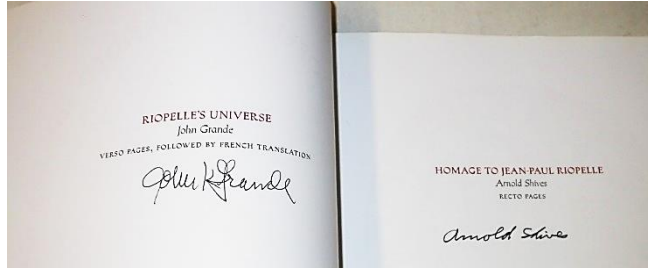 RIOPELLE'S UNIVERSE
John Grande
VERSO PAGES, FOLLOWED BY FRENCH TRANSLATION
John K Grande
HOMAGE TO JEAN-PAUL RIOPELLE
Arnold Shives
RECTO PAGES
Arnold Shives